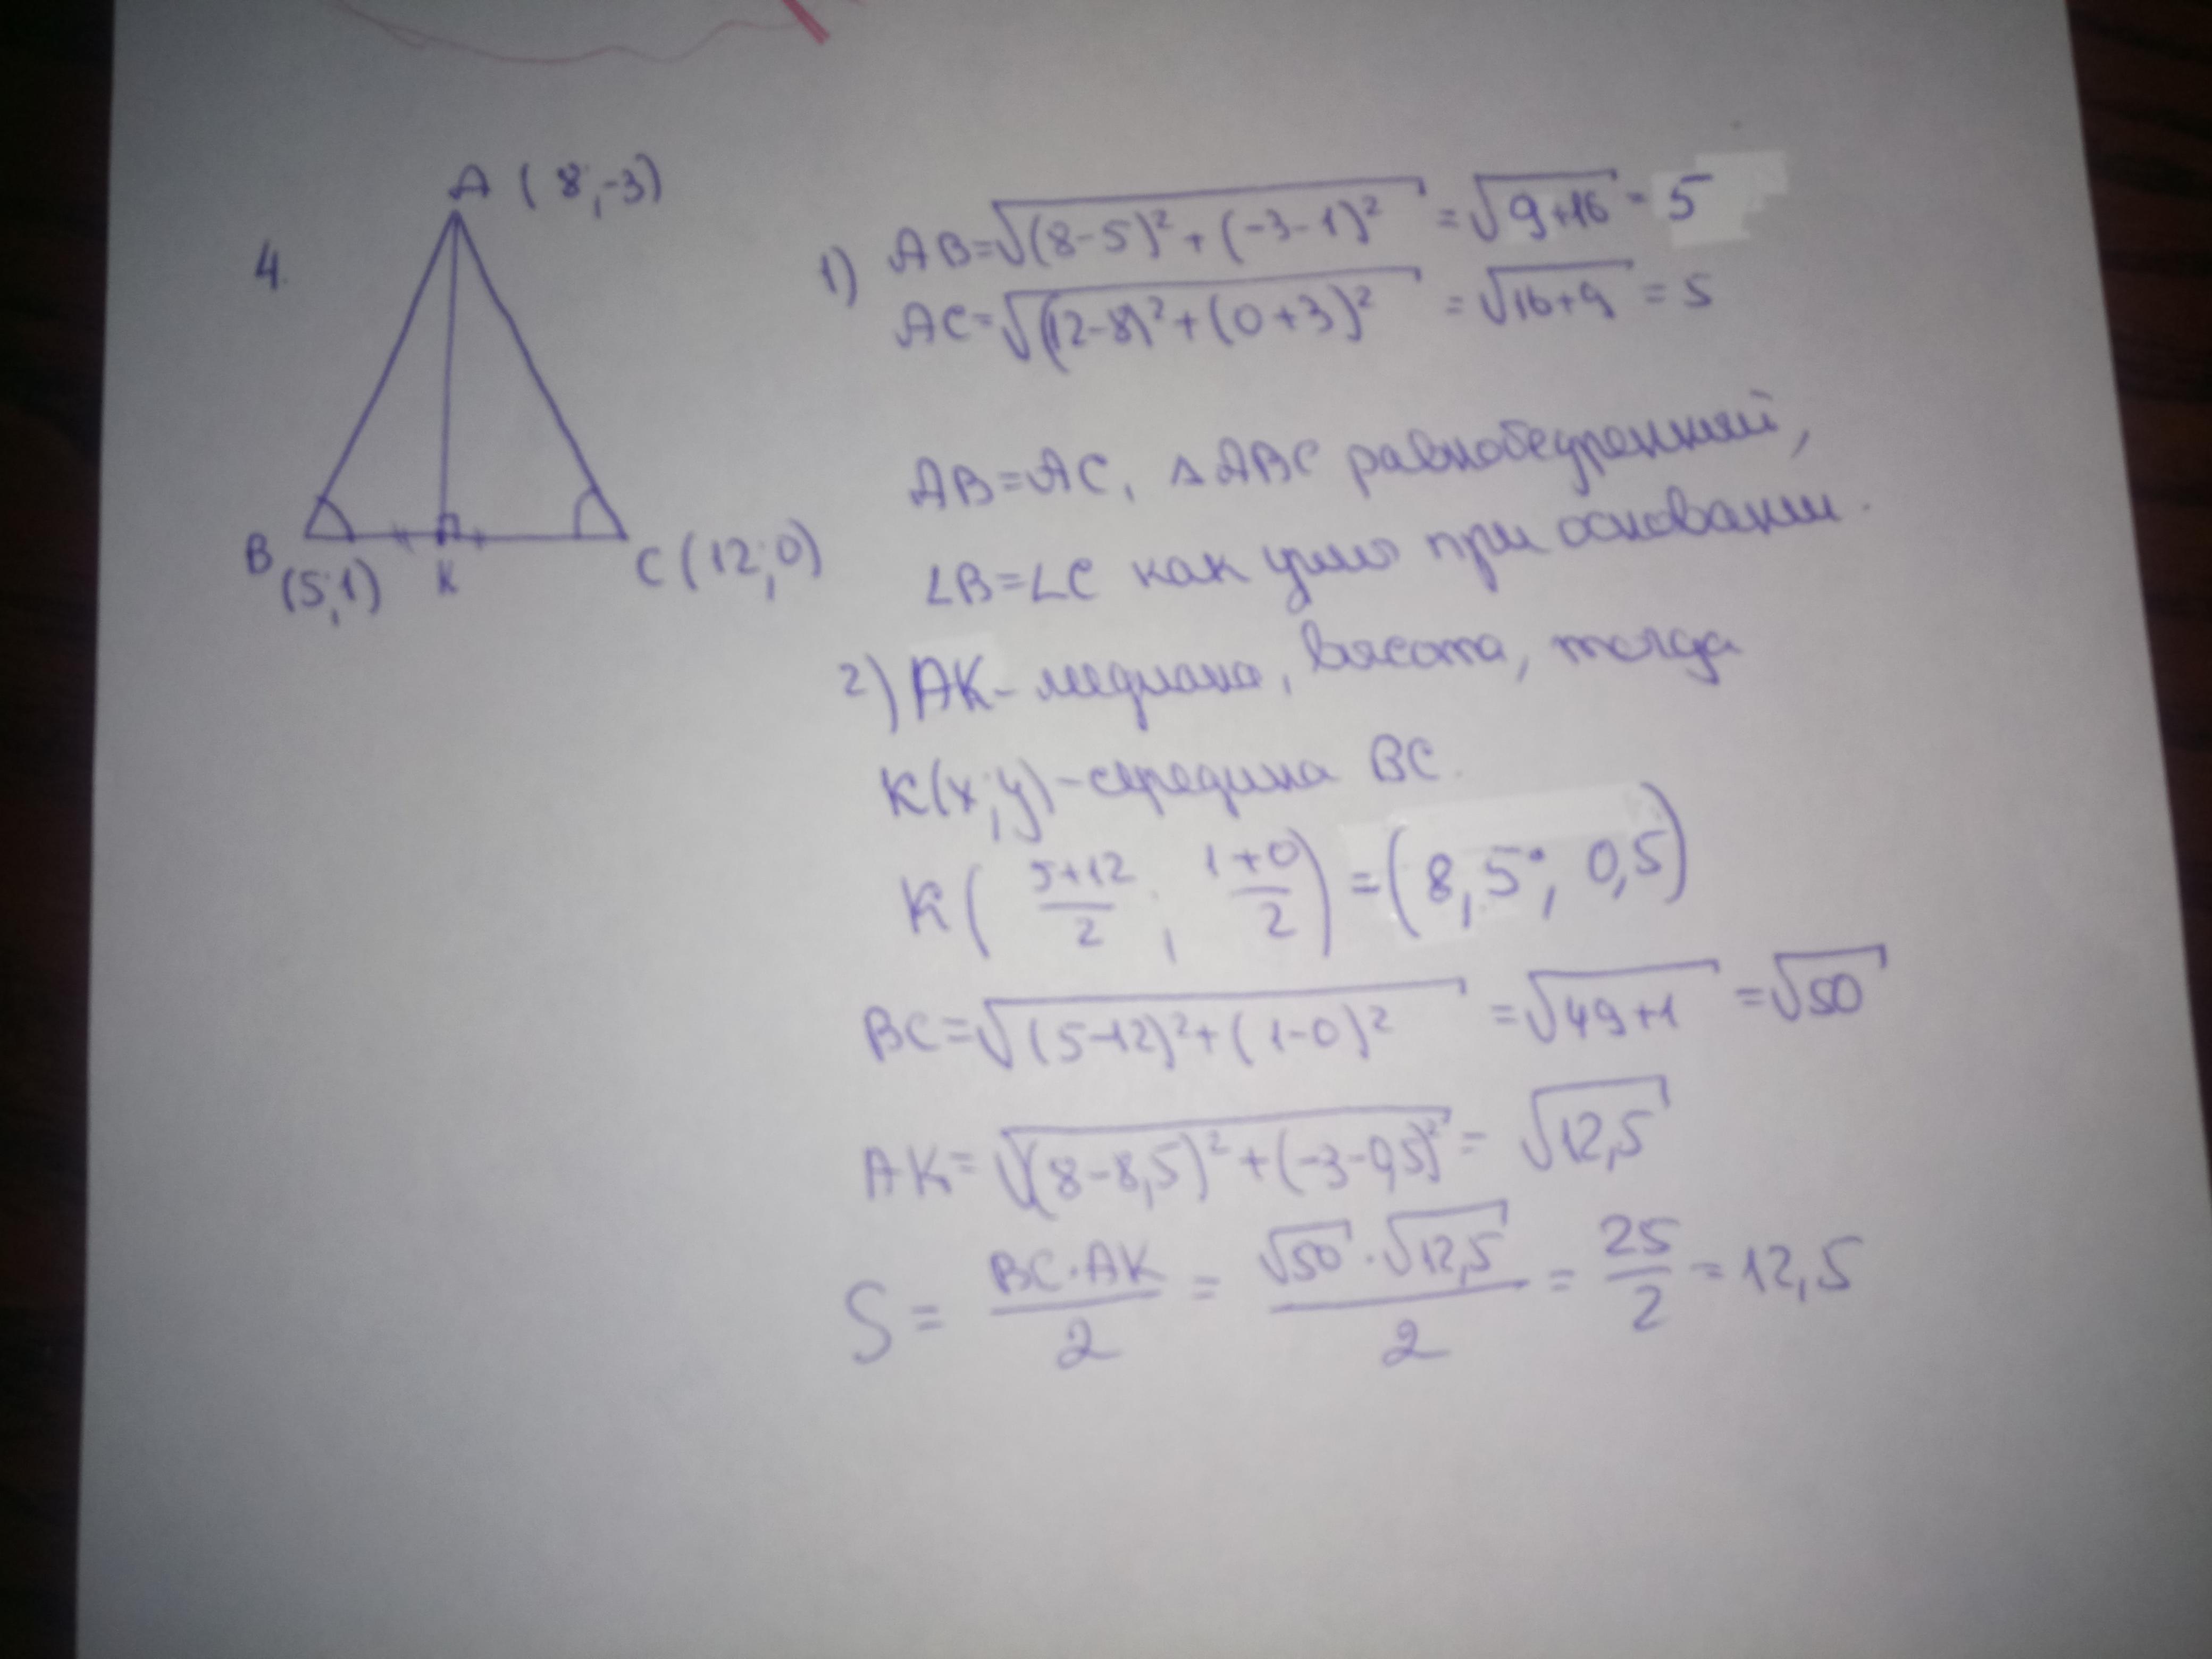 4.
A (8;-3)
B (5;1)
K
C (12;0)
1) AB=√(8-5)²+(-3-1)² = √9+16 = 5
AC=√(12-8)²+(0+3)² = √16+9 = 5
AB=AC, ΔABC равнобедренный,
∠B=∠C как углы при основании.
2) AK-медиана, высота, тогда
K(x;y)-середина BC.
K( 5+12/2 ; 1+0/2 ) =(8,5; 0,5)
BC=√(5-12)²+(1-0)² =√49+1 =√50
AK=√(8-8,5)²+(-3-0,5)² = √12,5
S = BC·AK/2 = √50·√12,5/2 = 25/2 = 12,5